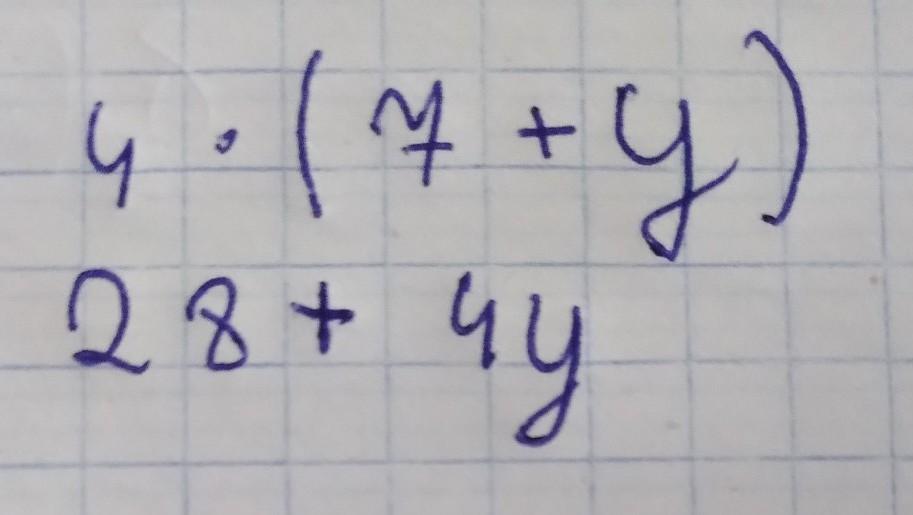 4 · (7 + y)
28 + 4y